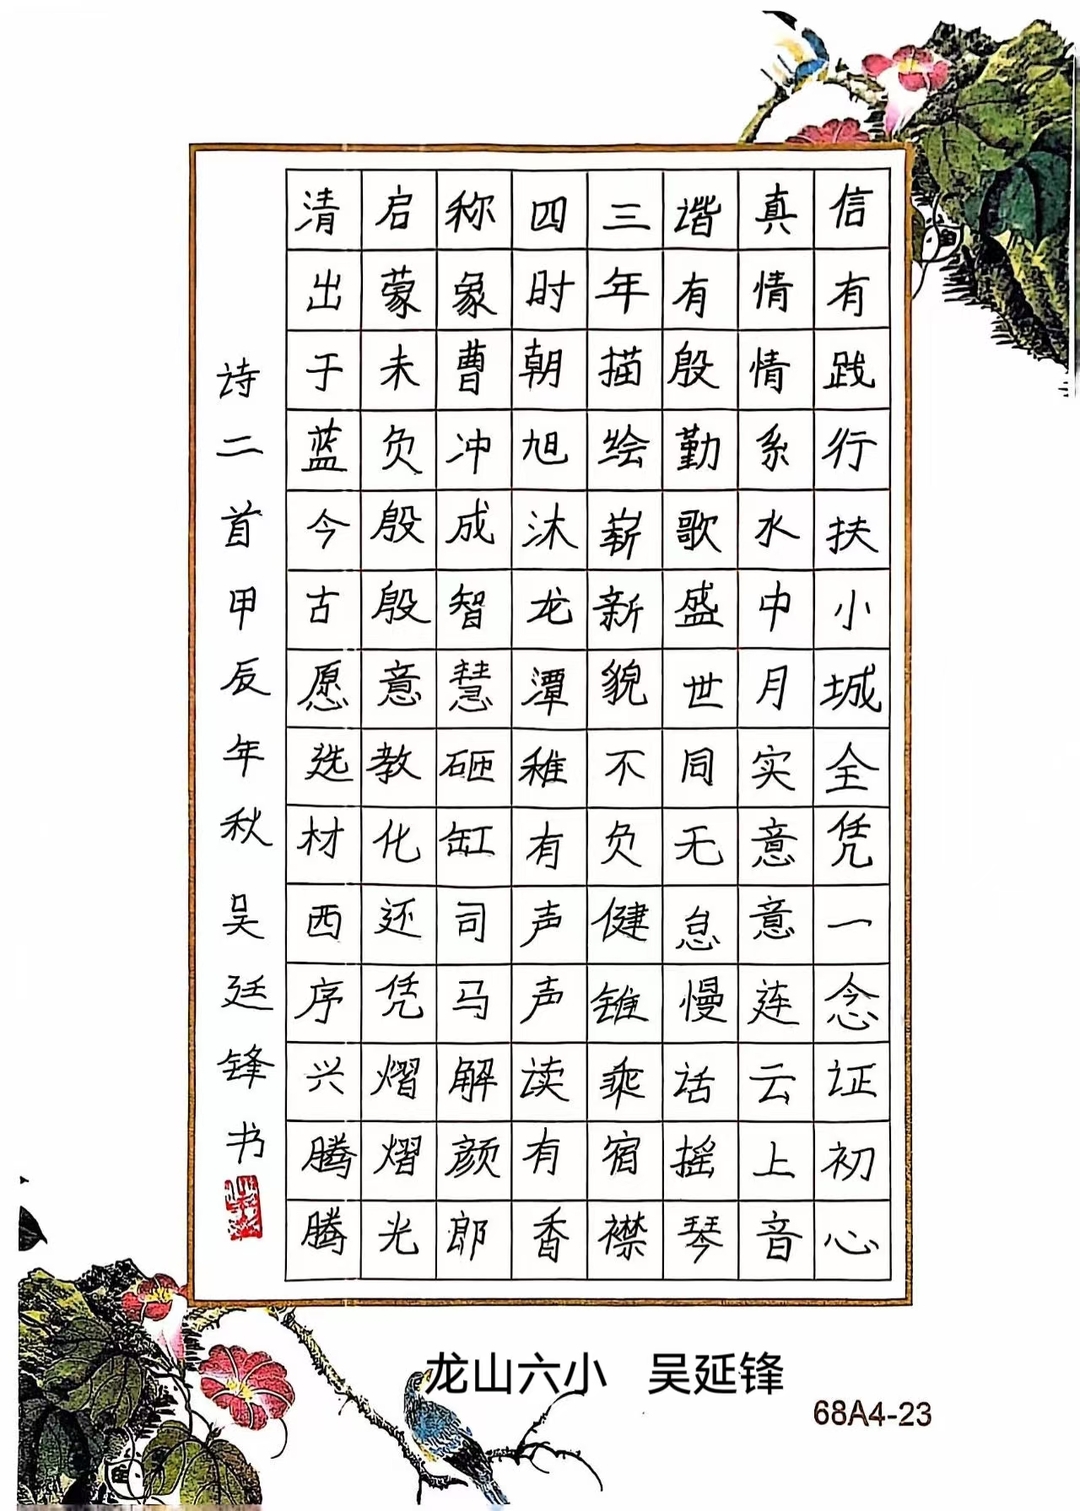 信有践行扶小城全凭一念证初心
真情情系水中月实意意莲云上音
谐有殷勤歌盛世同无怠慢话摇琴
三年描绘崭新貌不负健锥乘宿襟
四时朝旭沐龙潭稚有声声读有香
称象曹冲成智慧砸缸司马解颜郎
启蒙未负殷殷意教化还凭熠熠光
清出于蓝今古愿选材西序兴腾腾
诗二首甲辰年秋吴廷锋书
龙山六小 吴延锋
68A4-23